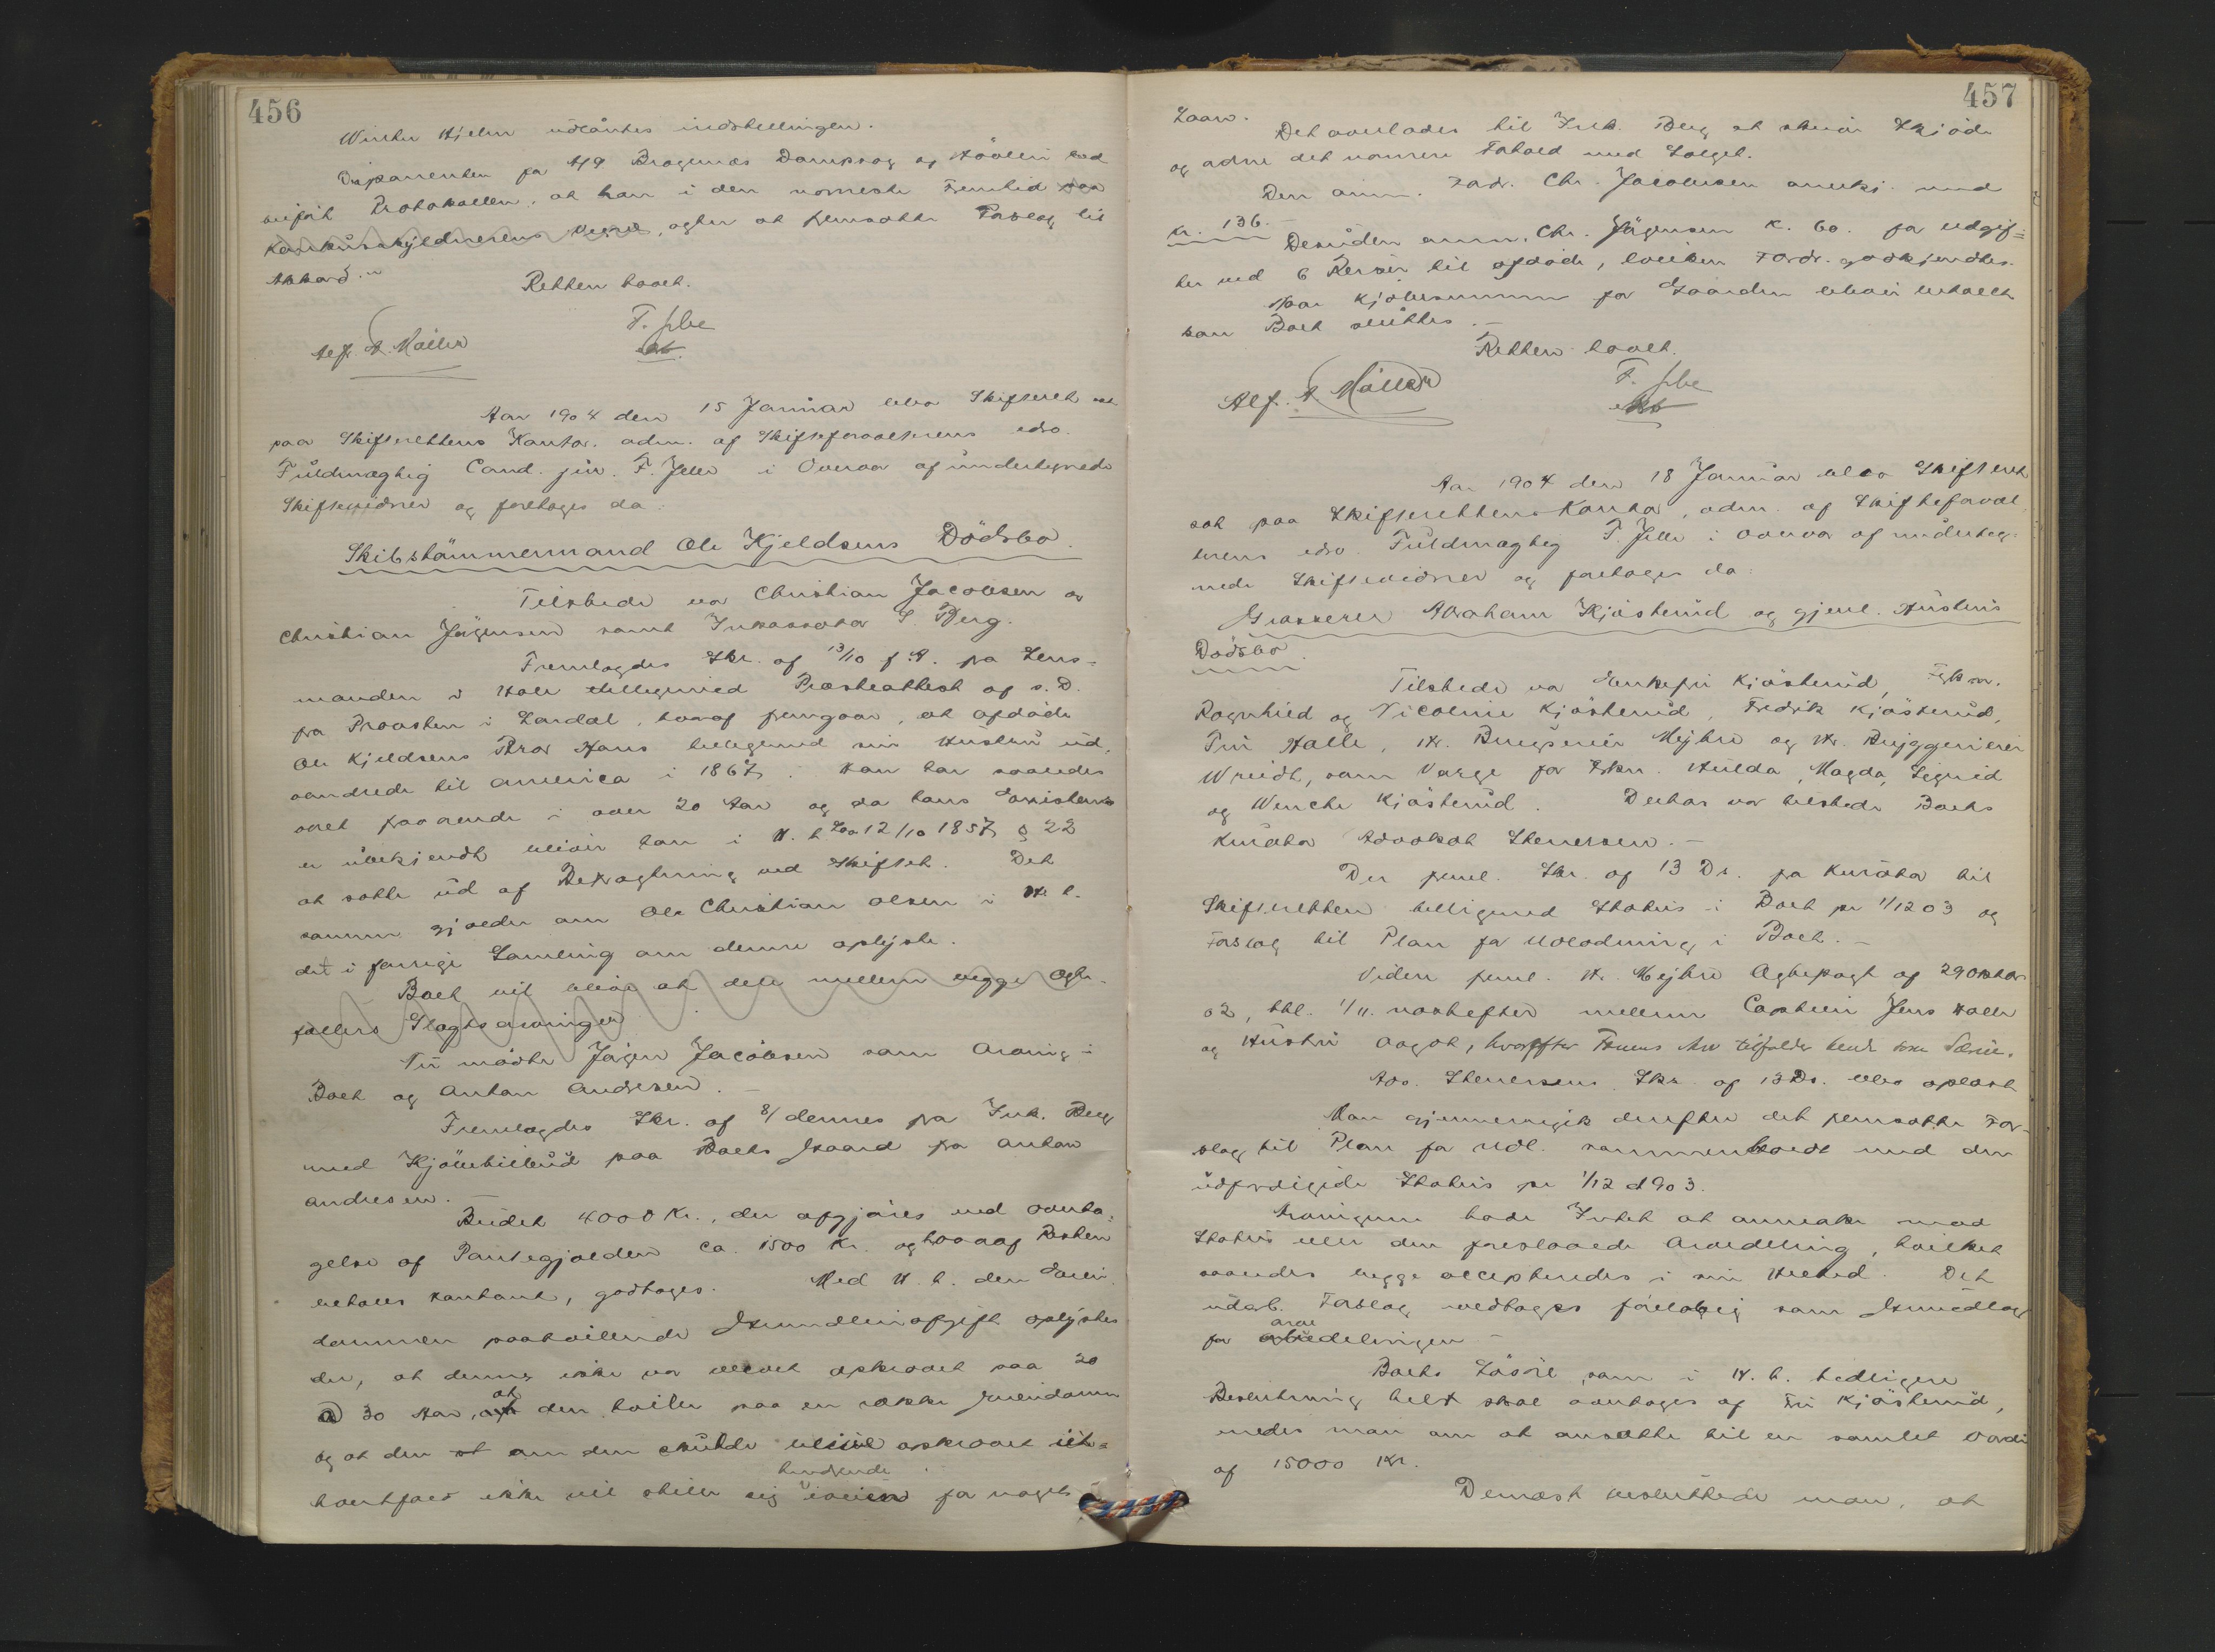 456
Winter Hjelm udlåntes indstillingen.
Disponenten for A/S Bragernæs Dampsag og Høvleri bad
anført Protokollen, at han i den nærmeste Fremtid paa
Konkursskyldnerens Vegne, agter at fremsætte Forslag til
Akkord."
Retten hævet.
Alf. A. Møller
F. Jelle
Aar 1904 den 15 Januar blev Skifteret sat
paa Skifterettens Kontor, adm. af Skifteforvalterens edsv.
Fuldmægtig Cand. jur. F. Jelle i Overvær af undertegnede
Skiftevidner og foretoges da:
Skibstømmermand Ole Kjeldsens Dødsbo.
Tilstede var Christian Jacobsen og
Christian Jørgensen samt Inkassator S. Berg.
Fremlagdes Skr. af 13/10 f. A. fra Lens-
manden i Hole tilligemed Præsteattest af s. D.
fra Provsten i Lardal, hvoraf fremgaar, at afdøde
Ole Kjeldsens Bror Hans tilligemed sin Hustru ud-
vandrede til America i 1867. Han har saaledes
været fraværende i over 20 Aar og da hans Existens
er ubekjendt bliver han i H. t. Lov 12/10 1857 § 22
at sætte ud af Betragtning ved Skiftet. Det
samme gjælder om Ole Christian Olsen i H. t.
det i forrige Samling om denne oplyste.
Boet vil blive at dele mellem begge Ægte-
fællers Slægtsarvinger.
Nu mødte Jørgen Jacobsen som Arving i
Boet og Anton Andresen. -
Fremlagdes Skr. af 8/ dennes fra Ink. Berg
med Kjøbetilbud paa Boets Gaard fra Anton
Andresen. -
Budet 4000 Kr., der afgjøres ved overta-
gelse af Pantegjælden ca. 1500 Kr. og hvoraf Resten
betales kontant, godtoges. Med H. t. den Eien-
dommen paahvilende Grundleieafgift oplystes
der, at denne ikke var blevet opkrævet paa 20
à 30 Aar, at den hviler paa en række Eiendomme
og at den at om den skulde blive opkrævet i et-
hvertfald ikke vil stille sig hindrende iveien for noget
457
Laan.
Det overlades til Ink. Berg at skrive Skjøde
og ordne det nærmere Forhold med Salget.
Den anm. Fordr. Chr. Jacobsen anerkj. med
Kr. 136.-
Desuden anm. Chr. Jørgensen K. 60. for udgif-
ter ved 6 Reiser til afdøde, hvilken Fordr. godkjendtes.
Naar Kjøbesummen for Gaarden bliver betalt
kan Boet sluttes. -
Retten hævet.
Alf. A. Møller
F. Jelle
Aar 1904 den 18 Januar blev Skifteret
sat paa Skifterettens Kontor, adm. af Skifteforval-
terens edsv. Fuldmægtig F. Jelle i Overvær af underteg-
nede Skiftevidner og foretoges da:
Grosserer Abraham Kjøsterud og gjenl. Hustrus
Dødsbo.
Tilstede var Enkefru Kjøsterud, Frknr.
Ragnhild og Nicoline Kjøsterud, Fredrik Kjøsterud,
Fru Halle, Hr. Brugseier Mejbre og Hr. Bryggerieier
Wriedt, som Værge for Frknr. Hulda, Magda, Sigrid
og Wenche Kjøsterud. Derhos var tilstede Boets
Kurator Advokat Stenersen. -
Der freml. Skr. af 13 Ds. fra Kurator til
Skifteretten tilligemed Status i Boet pr 1/12 03 og
Forslag til Plan for Udlodning i Boet. -
Videre freml. Hr. Mejbre Ægtepagt af 29 Oktbr.
02, thl. 1/11. næstefter mellem Captein Jens Halle
og Hustru Aagot, hvorefter Fruens Arv tilfalder hende som Særeie.
Adv. Stenersens Skr. af 13 Ds. blev oplæst
Man gjennemgik derefter det fremsatte For-
slag til Plan for Udl. sammenholdt med den
udfærdigede Status pr 1/12 1903.
Arvingerne havde Intet at anmærke mod
Status eller den foreslaaede Arvedeling, hvilket
saaledes begge accepteredes i sin Helhed. Det
udarb. Forslag vedtages foreløbig som Grundlag
for arvedelingen -
Boets Løsøre, som i H. t. tidligere
Beslutning helt skal overtages af Fru Kjøsterud,
enedes man om at ansætte til en samlet Værdi
af 15000 Kr.
Dernæst besluttede man, at